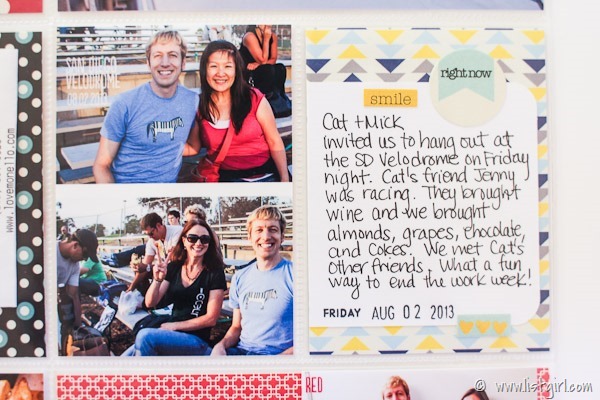 www.lovemonello.com
SAN DIEGO
VELODROME
right now
smile
Cat + Mick
invited us to hang out at
the SD Velodrome on Friday
night. Cat's friend Jenny
was racing. They brought
wine and we brought
almonds, grapes, chocolate,
and Cokes. We met Cat's
other friends. What a fun
way to end the work week!
FRIDAY AUG 02 2013
RED
© www.listgirl.com